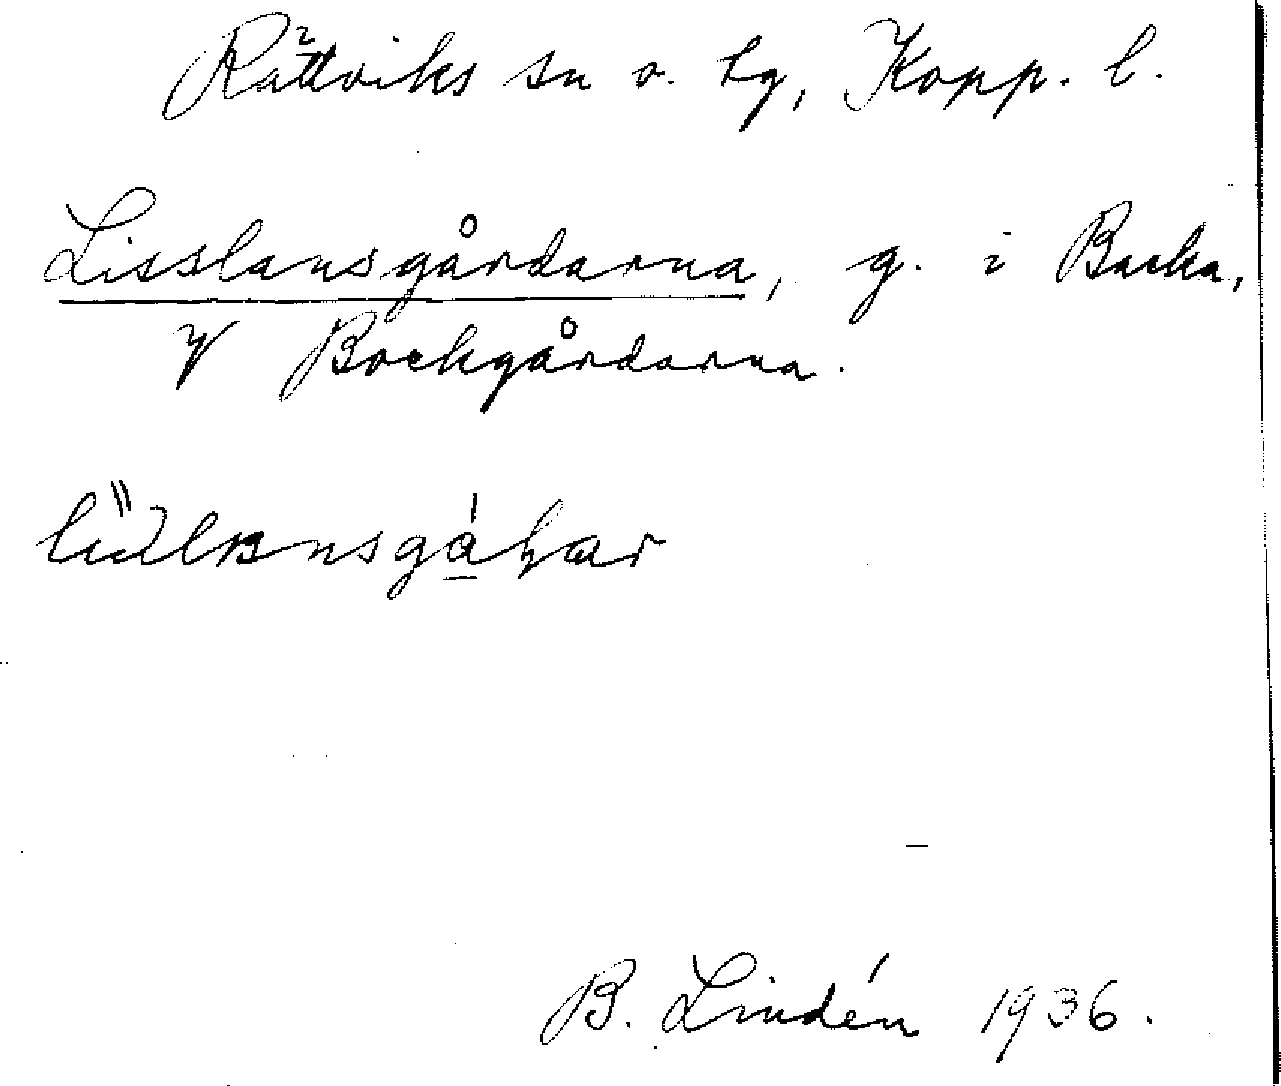 Rättviks sn o. hg, Kopp. l.
Lisslansgårdarna, g. i Backa,
y Bockgårdarna.
B. Lindén 1936.